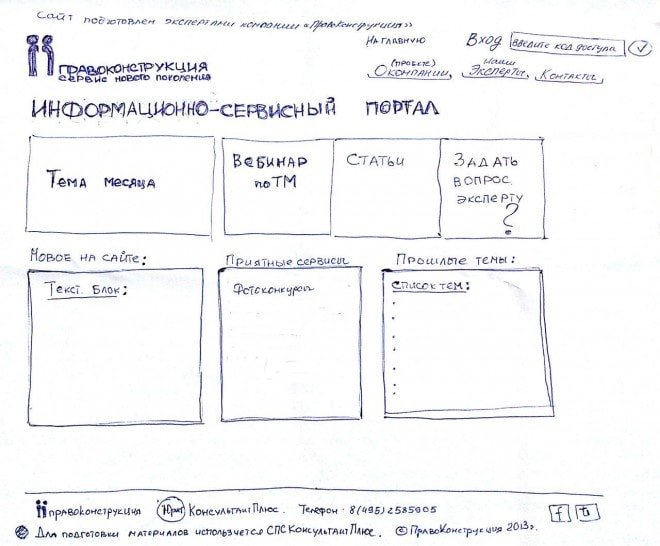 Сайт подготовлен экспертами компании «Правоконструкция»
На главную
Вход
введите код доступа
ПРАВОКОНСТРУКЦИЯ
СЕРВИС НОВОГО ПОКОЛЕНИЯ
О компании, (проекте)
Наши Эксперты,
Контакты
ИНФОРМАЦИОННО-СЕРВИСНЫЙ ПОРТАЛ
Тема месяца
Вебинар по ТМ
Статьи
Задать вопрос эксперту ?
Новое на сайте:
Приятные сервисы
Прошлые темы:
Текст. Блок:
Фотоконкурсы
Список тем:
правоконструкция
Юрист
КонсультантПлюс. Телефон · 8(495)2585005
f
Для подготовки материалов используется СПС КонсультантПлюс. © ПравоКонструкция 2013г.